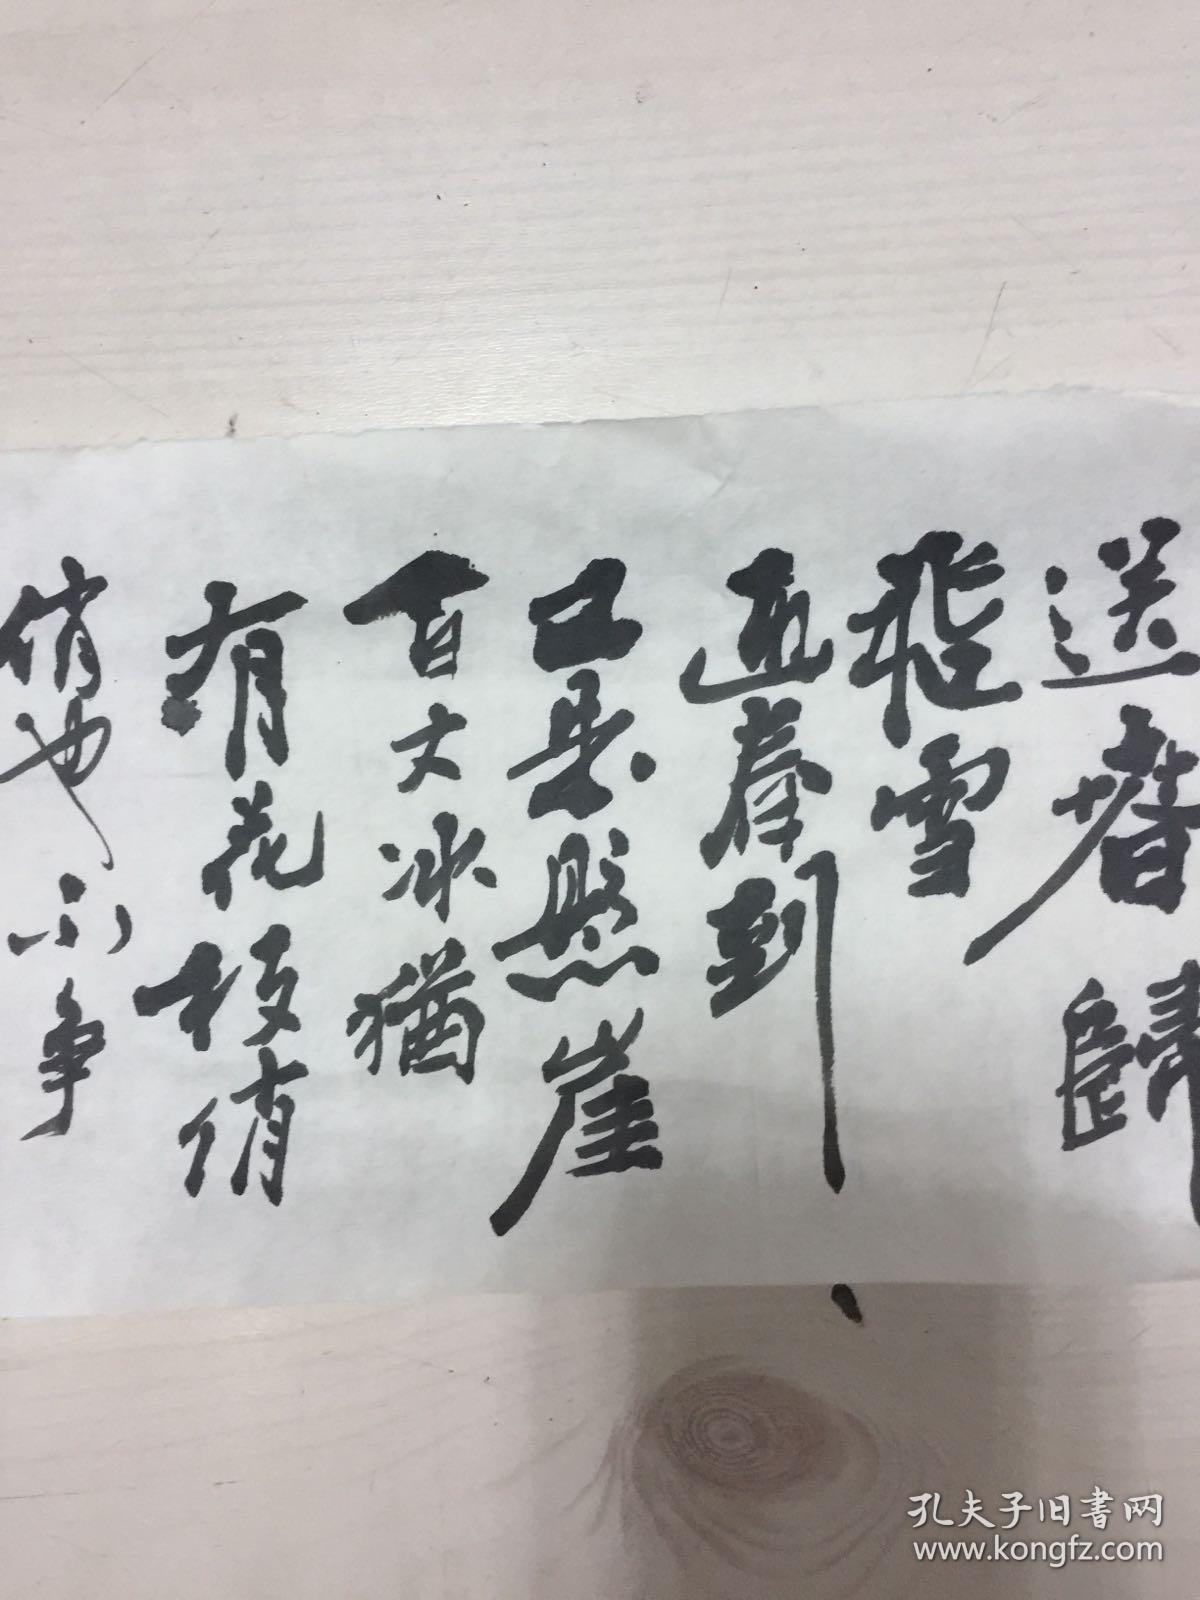 送春歸
飛雪
迎春到
已是懸崖
百丈冰猶
有花枝俏
俏也不争
孔夫子旧書网
www.kongfz.com